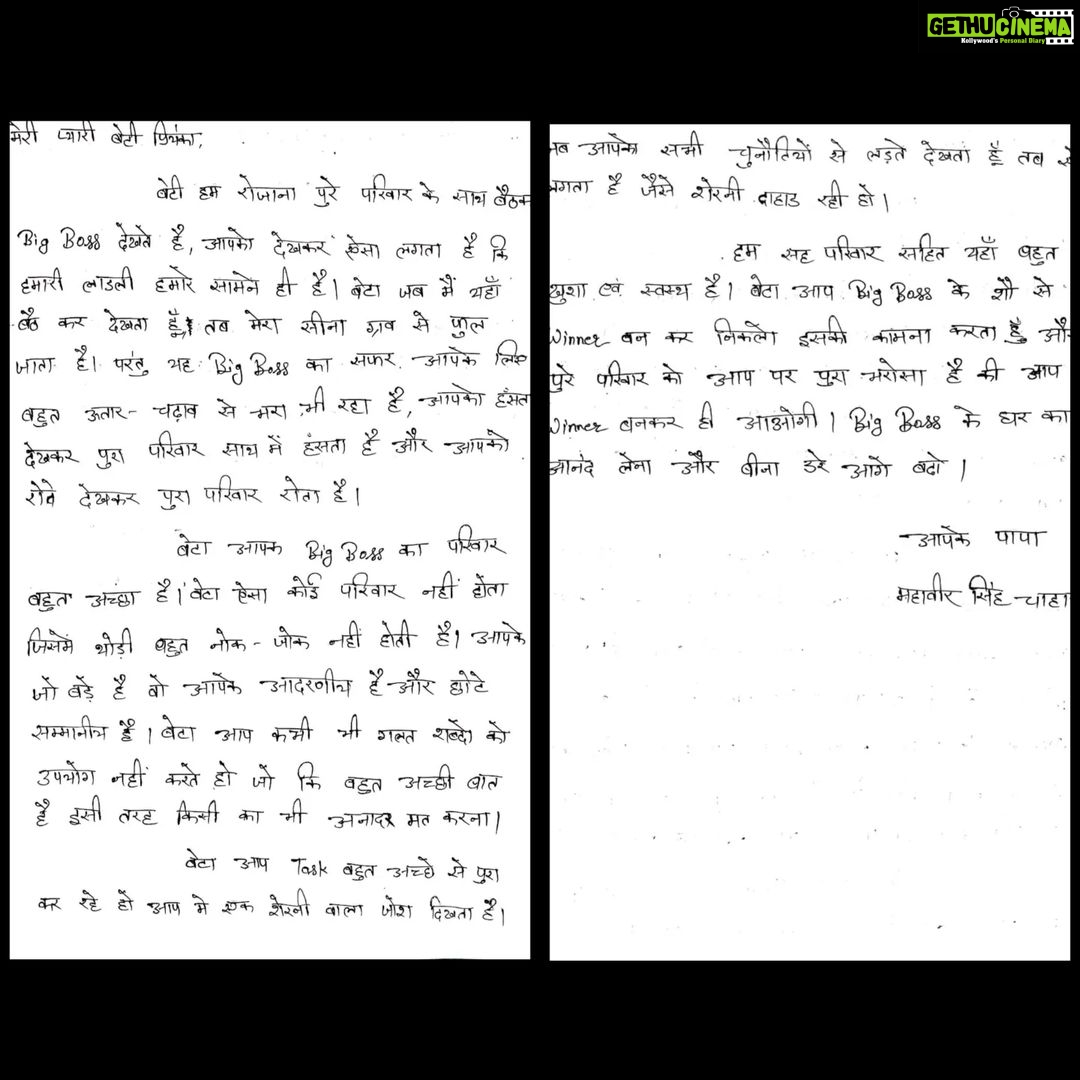 GETHUCINEMA
Kollywood's Personal Diary
मेरी प्यारी बेटी प्रियंका,
बेटी हम रोजाना पुरे परिवार के साथ बैठक
Big Boss देखते है, आपको देखकर ऐसा लगता है कि
हमारी लाडली हमारे सामने ही है। बेटा जब मैं यहाँ
बैठ कर देखता हूँ तब मेरा सीना ग्रव से फुल
जाता है। परंतु यह Big Boss का सफर आपके लिए
बहुत ऊतार-चढ़ाव से भरा भी रहा है, आपको हँसत
देखकर पुरा परिवार साथ में हंसता है और आपको
रोते देखकर पुरा परिवार रोता है।
बेटा आपक Big Boss का परिवार
बहुत अच्छा है। बेटा ऐसा कोई परिवार नहीं होता
जिसमें थोड़ी बहुत नोक-जोक नहीं होती है। आपके
जो बड़े है वो आपके आदरणीय है और छोटे
सम्मानीय है। बेटा आप कभी भी गलत शब्दो को
उपयोग नहीं करते हो जो कि बहुत अच्छी बात
है इसी तरह किसी का भी अनादर मत करना।
बेटा आप Task बहुत अच्छे से पुरा
कर रहे हो आप मे एक शेरनी वाला जोश दिखता है।
जब आपको सभी चुनौतियों से लड़ते देखता हूँ तब
लगता है जैसे शेरनी दाहाड रही हो।
हम सह परिवार सहित यहाँ बहुत
खुश एवं स्वस्थ है। बेटा आप Big Boss के शौ से
Winner बन कर निकलो इसकी कामना करता हुँ और
पुरे परिवार को आप पर पुरा भरोसा है की आप
Winner बनकर ही आओगी। Big Boss के घर का
आनंद लेना और बीना डरे आगे बढो।
आपके पापा
महावीर सिंह चाहा